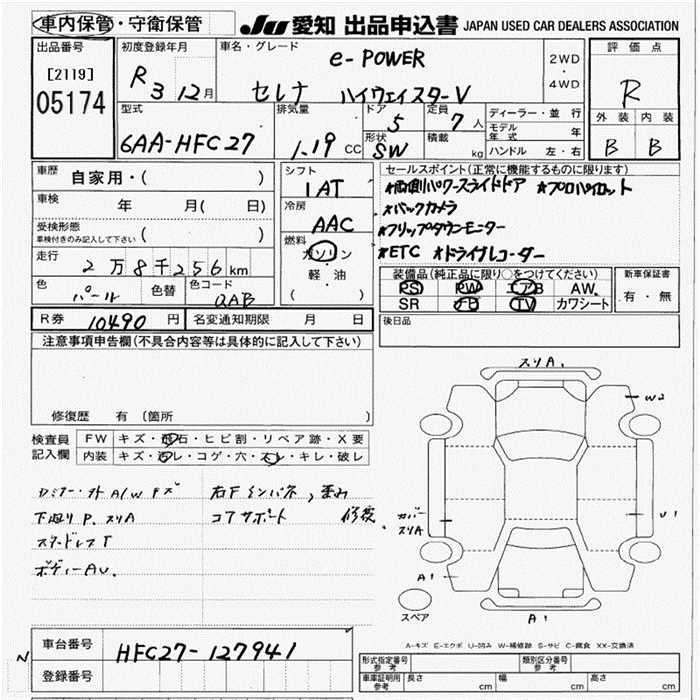 車内保管・守衛保管
JU 愛知 出品申込書 JAPAN USED CAR DEALERS ASSOCIATION
出品番号 [2119] 05174
初度登録年月 R3 12月
車名・グレード e-POWER
セレナ ハイウェイスターV
2WD・4WD
評価点 R
外装 内装
B B
型式 6AA-HFC27
排気量 1.19 cc
ドア 5
形状 SW
定員 7人
積載 kg
ディーラー・並行
モデル年式 年
ハンドル 左・右
車歴 自家用・( )
車検 年 月( 日)
受検形態 車検付きのみ記入して下さい ( )
走行 2万8千256km
色 パール 色替 色コード QAB
シフト 1AT
冷房 AAC
燃料 ガソリン
軽・油
( )
セールスポイント(正常に機能するものに限ります)
★両側パワースライドドア ★プロパイロット
★バックカメラ
★フリップダウンモニター
★ETC ★ドライブレコーダー
装備品(純正品に限り○をつけてください)
PS PW エアB AW
SR ナビ TV カワシート
新車保証書
有・無
R券 10490 円 名変通知期限 月 日
後日品
注意事項申告欄(不具合内容等は具体的に記入して下さい)
修復歴 有 (箇所 )
検査員記入欄 FW キズ・飛石・ヒビ割・リペア跡・X要
内装 キズ・汚レ・コゲ・穴・スレ・キレ・破レ
A/W キズ
下廻り P、スリA
スタッドレスT
ボディーAU.
右Fインパネ、歪み
コアサポート 修復。
スリA1
W2
カバースリA
U1
A1
A1
スペア
A-キズ E-エクボ U-凹み W-補修跡 S-サビ C-腐食 XX-交換済
車台番号 HFC27-127941
N 登録番号
形式指定番号 参考 類別区分番号 参考
車庫証明用 参考 長さ cm 幅 cm 高さ cm